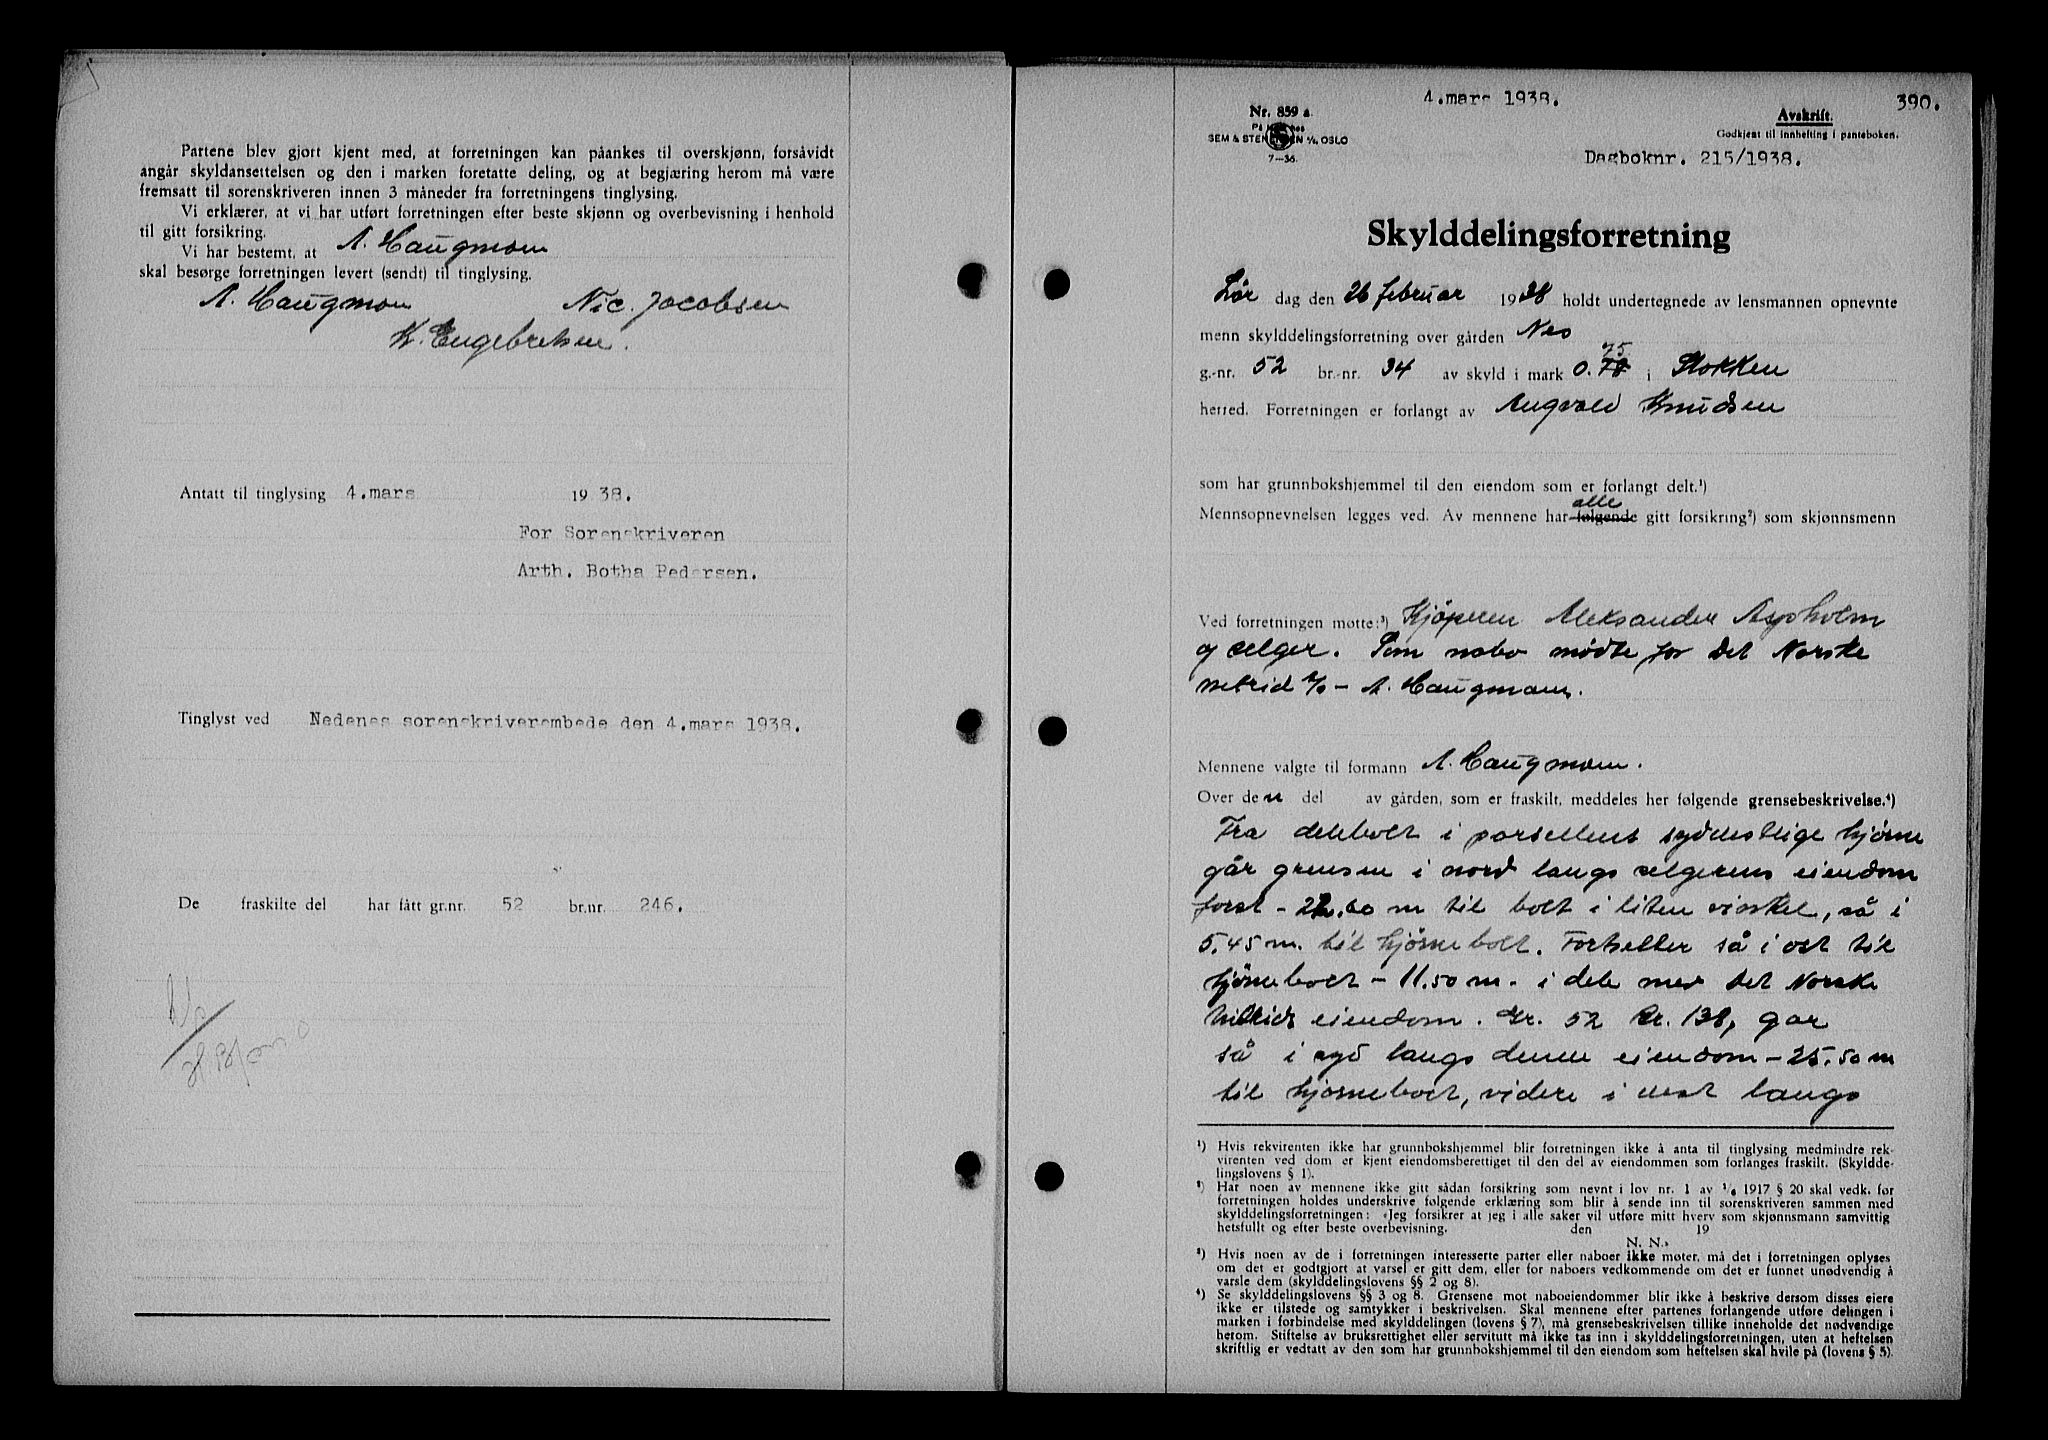 Partene blev gjort kjent med, at forretningen kan påankes til overskjønn, forsåvidt
angår skyldansettelsen og den i marken foretatte deling, og at begjæring herom må være
fremsatt til sorenskriveren innen 3 måneder fra forretningens tinglysing.
Vi erklærer, at vi har utført forretningen efter beste skjønn og overbevisning i henhold
til gitt forsikring.
Vi har bestemt, at A. Haugmoen
skal besørge forretningen levert (sendt) til tinglysing.
A. Haugmoen Nic. Jacobsen
K. Engebretsen.
Antatt til tinglysing 4.mars 1938.
For Sorenskriveren
Arth. Botha Pedersen.
Tinglyst ved Nedenes sorenskriverembede den 4.mars 1938.
De fraskilte del har fått gr.nr. 52 br.nr. 246.
4.mars 1938.
390.
Nr. 859 a.
På lager hos
SEM & STENERSEN A/S, OSLO
7-36.
Avskrift.
Godkjent til innhefting i panteboken.
Dagboknr. 215/1938.
Skylddelingsforretning
Lør dag den 26 februar 1938 holdt undertegnede av lensmannen opnevnte
menn skylddelingsforretning over gården Nes
75
g.-nr. 52 br.-nr. 34 av skyld i mark 0.78 i Stokken
herred. Forretningen er forlangt av Augvald Knudsen
som har grunnbokshjemmel til den eiendom som er forlangt delt.¹)
alle
Mennsopnevnelsen legges ved. Av mennene har følgende gitt forsikring²) som skjønnsmenn
Ved forretningen møtte:³) Kjøperen Aleksander Aspholm
og selger. Som nabo mødte for Det Norske
nitrid A/S - A. Haugmoen.
Mennene valgte til formann A. Haugmoen.
Over den del av gården, som er fraskilt, meddeles her følgende grensebeskrivelse.⁴)
Fra delebolt i parsellens sydvestlige hjørne
går grensen i nord langs selgerens eiendom
først - 22.60 m til bolt i liten vinkel, så i
5.45 m. til hjørnebolt. Fortsetter så i ost til
hjørnebolt - 11.50 m. i dele med Det Norske
Nitrids eiendom. Gr. 52 Br. 138, gar
så i syd langs denne eiendom - 25.50 m
til hjørnebolt, videre i vest langs
¹) Hvis rekvirenten ikke har grunnbokshjemmel blir forretningen ikke å anta til tinglysing medmindre rek-
virenten ved dom er kjent eiendomsberettiget til den del av eiendommen som forlanges fraskilt. (Skyldde-
lingslovens § 1).
²) Har noen av mennene ikke gitt sådan forsikring som nevnt i lov nr. 1 av 1/6 1917 § 20 skal vedk. før
forretningen holdes underskrive følgende erklæring som blir å sende inn til sorenskriveren sammen med
skylddelingsforretningen: «Jeg forsikrer at jeg i alle saker vil utføre mitt hverv som skjønnsmann samvittig
hetsfullt og efter beste overbevisning. den 19
N. N.»
³) Hvis noen av de i forretningen interesserte parter eller naboer ikke møter, må det i forretningen oplyses
om det er godtgjort at varsel er gitt dem, eller for naboers vedkommende om det er funnet unødvendig å
varsle dem (skylddelingslovens §§ 2 og 8).
⁴) Se skylddelingslovens §§ 3 og 8. Grensene mot naboeiendommer blir ikke å beskrive dersom disses eiere
ikke er tilstede og samtykker i beskrivelsen. Skal mennene efter partenes forlangende utføre delingen i
marken i forbindelse med skylddelingen (lovens § 7), må grensebeskrivelsen tillike inneholde det nødvendige
herom. Stiftelse av bruksrettighet eller servitutt må ikke tas inn i skylddelingsforretningen, uten at heftelsen
skriftlig er vedtatt av den som har grunnbokshjemmel til den eiendom som heftelsen skal hvile på (lovens § 5).